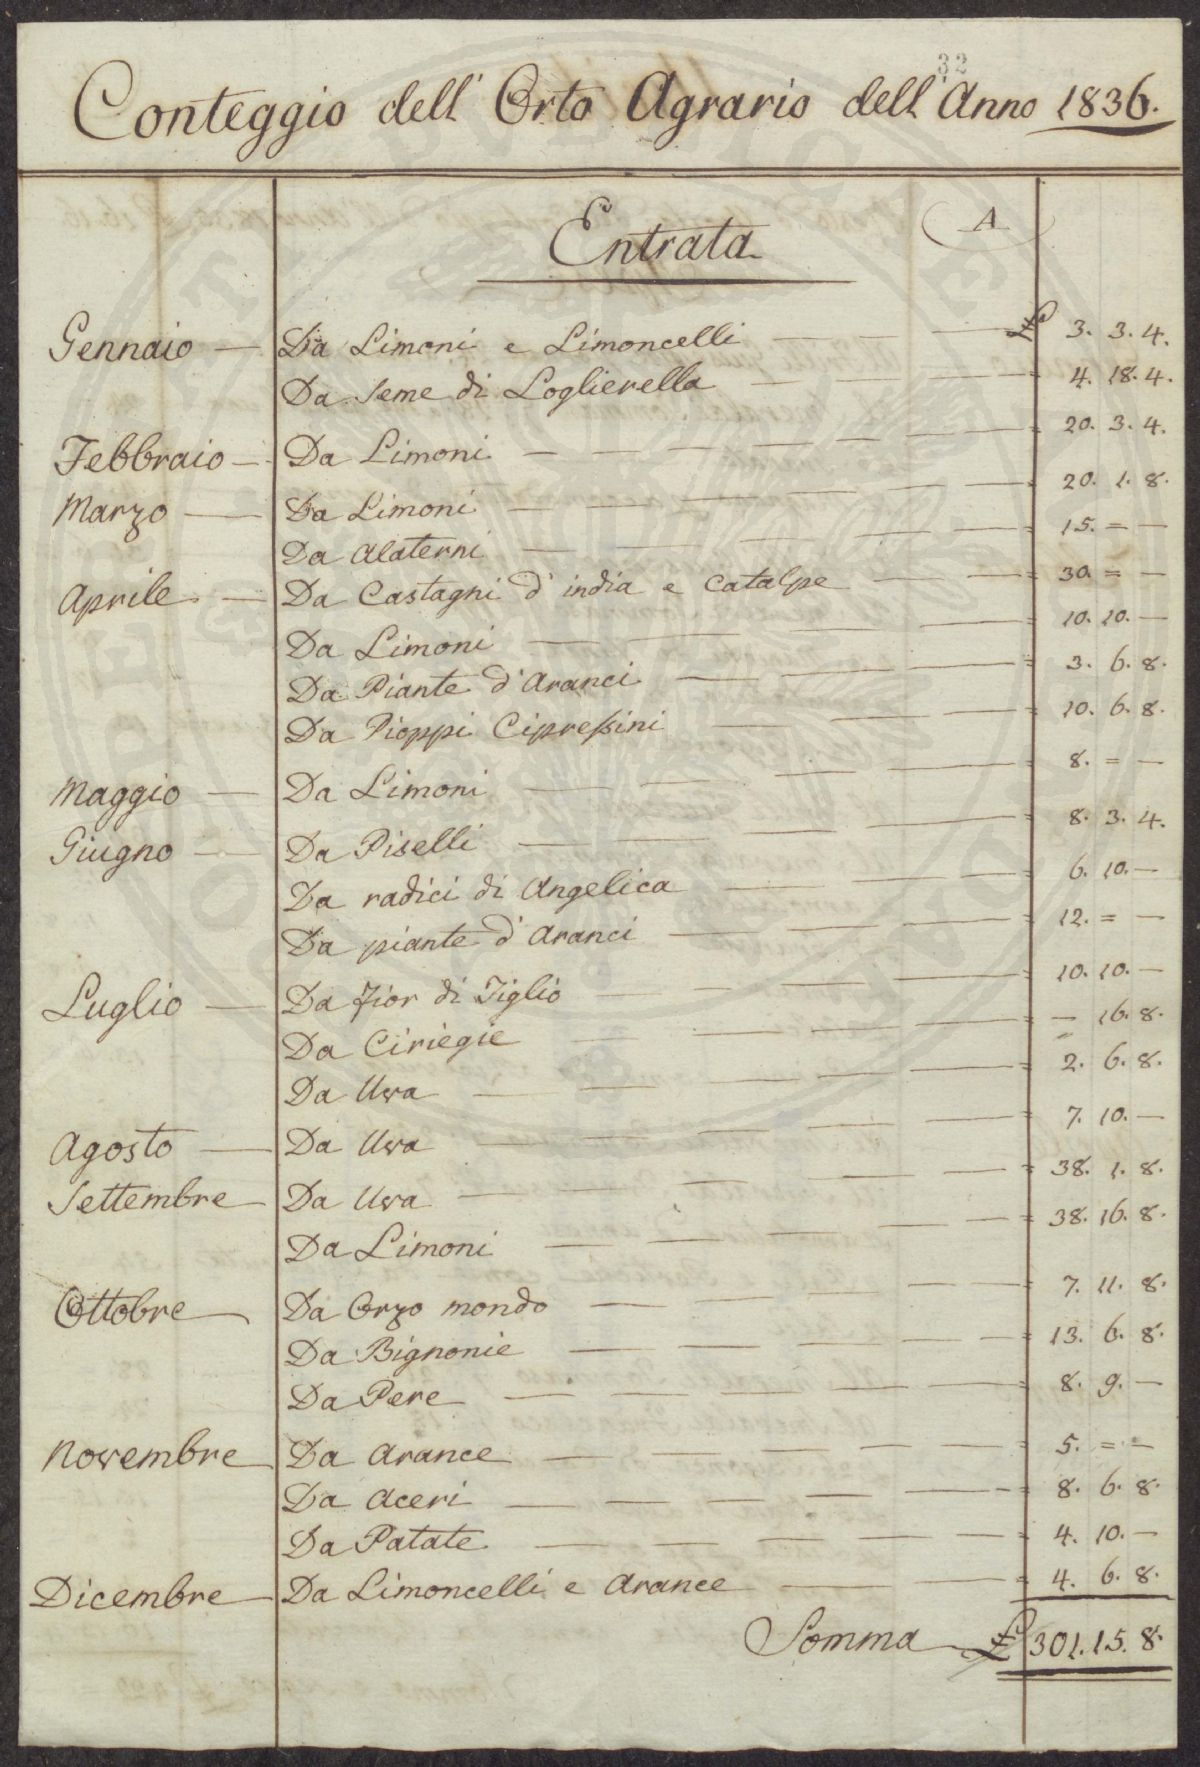 32
Conteggio dell' Orto Agrario dell' Anno 1836.
Entrata A
Gennaio — Da Limoni e Limoncelli — £ 3. 3. 4.
Da Seme di Loglierella — 4. 18. 4.
Febbraio — Da Limoni — 20. 3. 4.
Marzo — Da Limoni — 20. 1. 8.
Da Alaterni — 15. = —
Aprile — Da Castagni d'india e Catalpe — 30. = —
Da Limoni — 10. 10. —
Da Piante d'Aranci — 3. 6. 8.
Da Pioppi Cipressini — 10. 6. 8.
Maggio — Da Limoni — 8. = —
Giugno — Da Piselli — 8. 3. 4.
Da radici di Angelica — 6. 10. —
Da piante d'Aranci — 12. = —
Luglio — Da fior di Tiglio — 10. 10. —
Da Ciriegie — — 16. 8.
Da Uva — 2. 6. 8.
Agosto — Da Uva — 7. 10. —
Settembre — Da Uva — 38. 1. 8.
Da Limoni — 38. 16. 8.
Ottobre — Da Orzo mondo — 7. 11. 8.
Da Bignonie — 13. 6. 8.
Da Pere — 8. 9. —
Novembre — Da Arance — 5. = —
Da Aceri — 8. 6. 8.
Da Patate — 4. 10. —
Dicembre — Da Limoncelli e Arance — 4. 6. 8.
Somma £ 301. 15. 8.